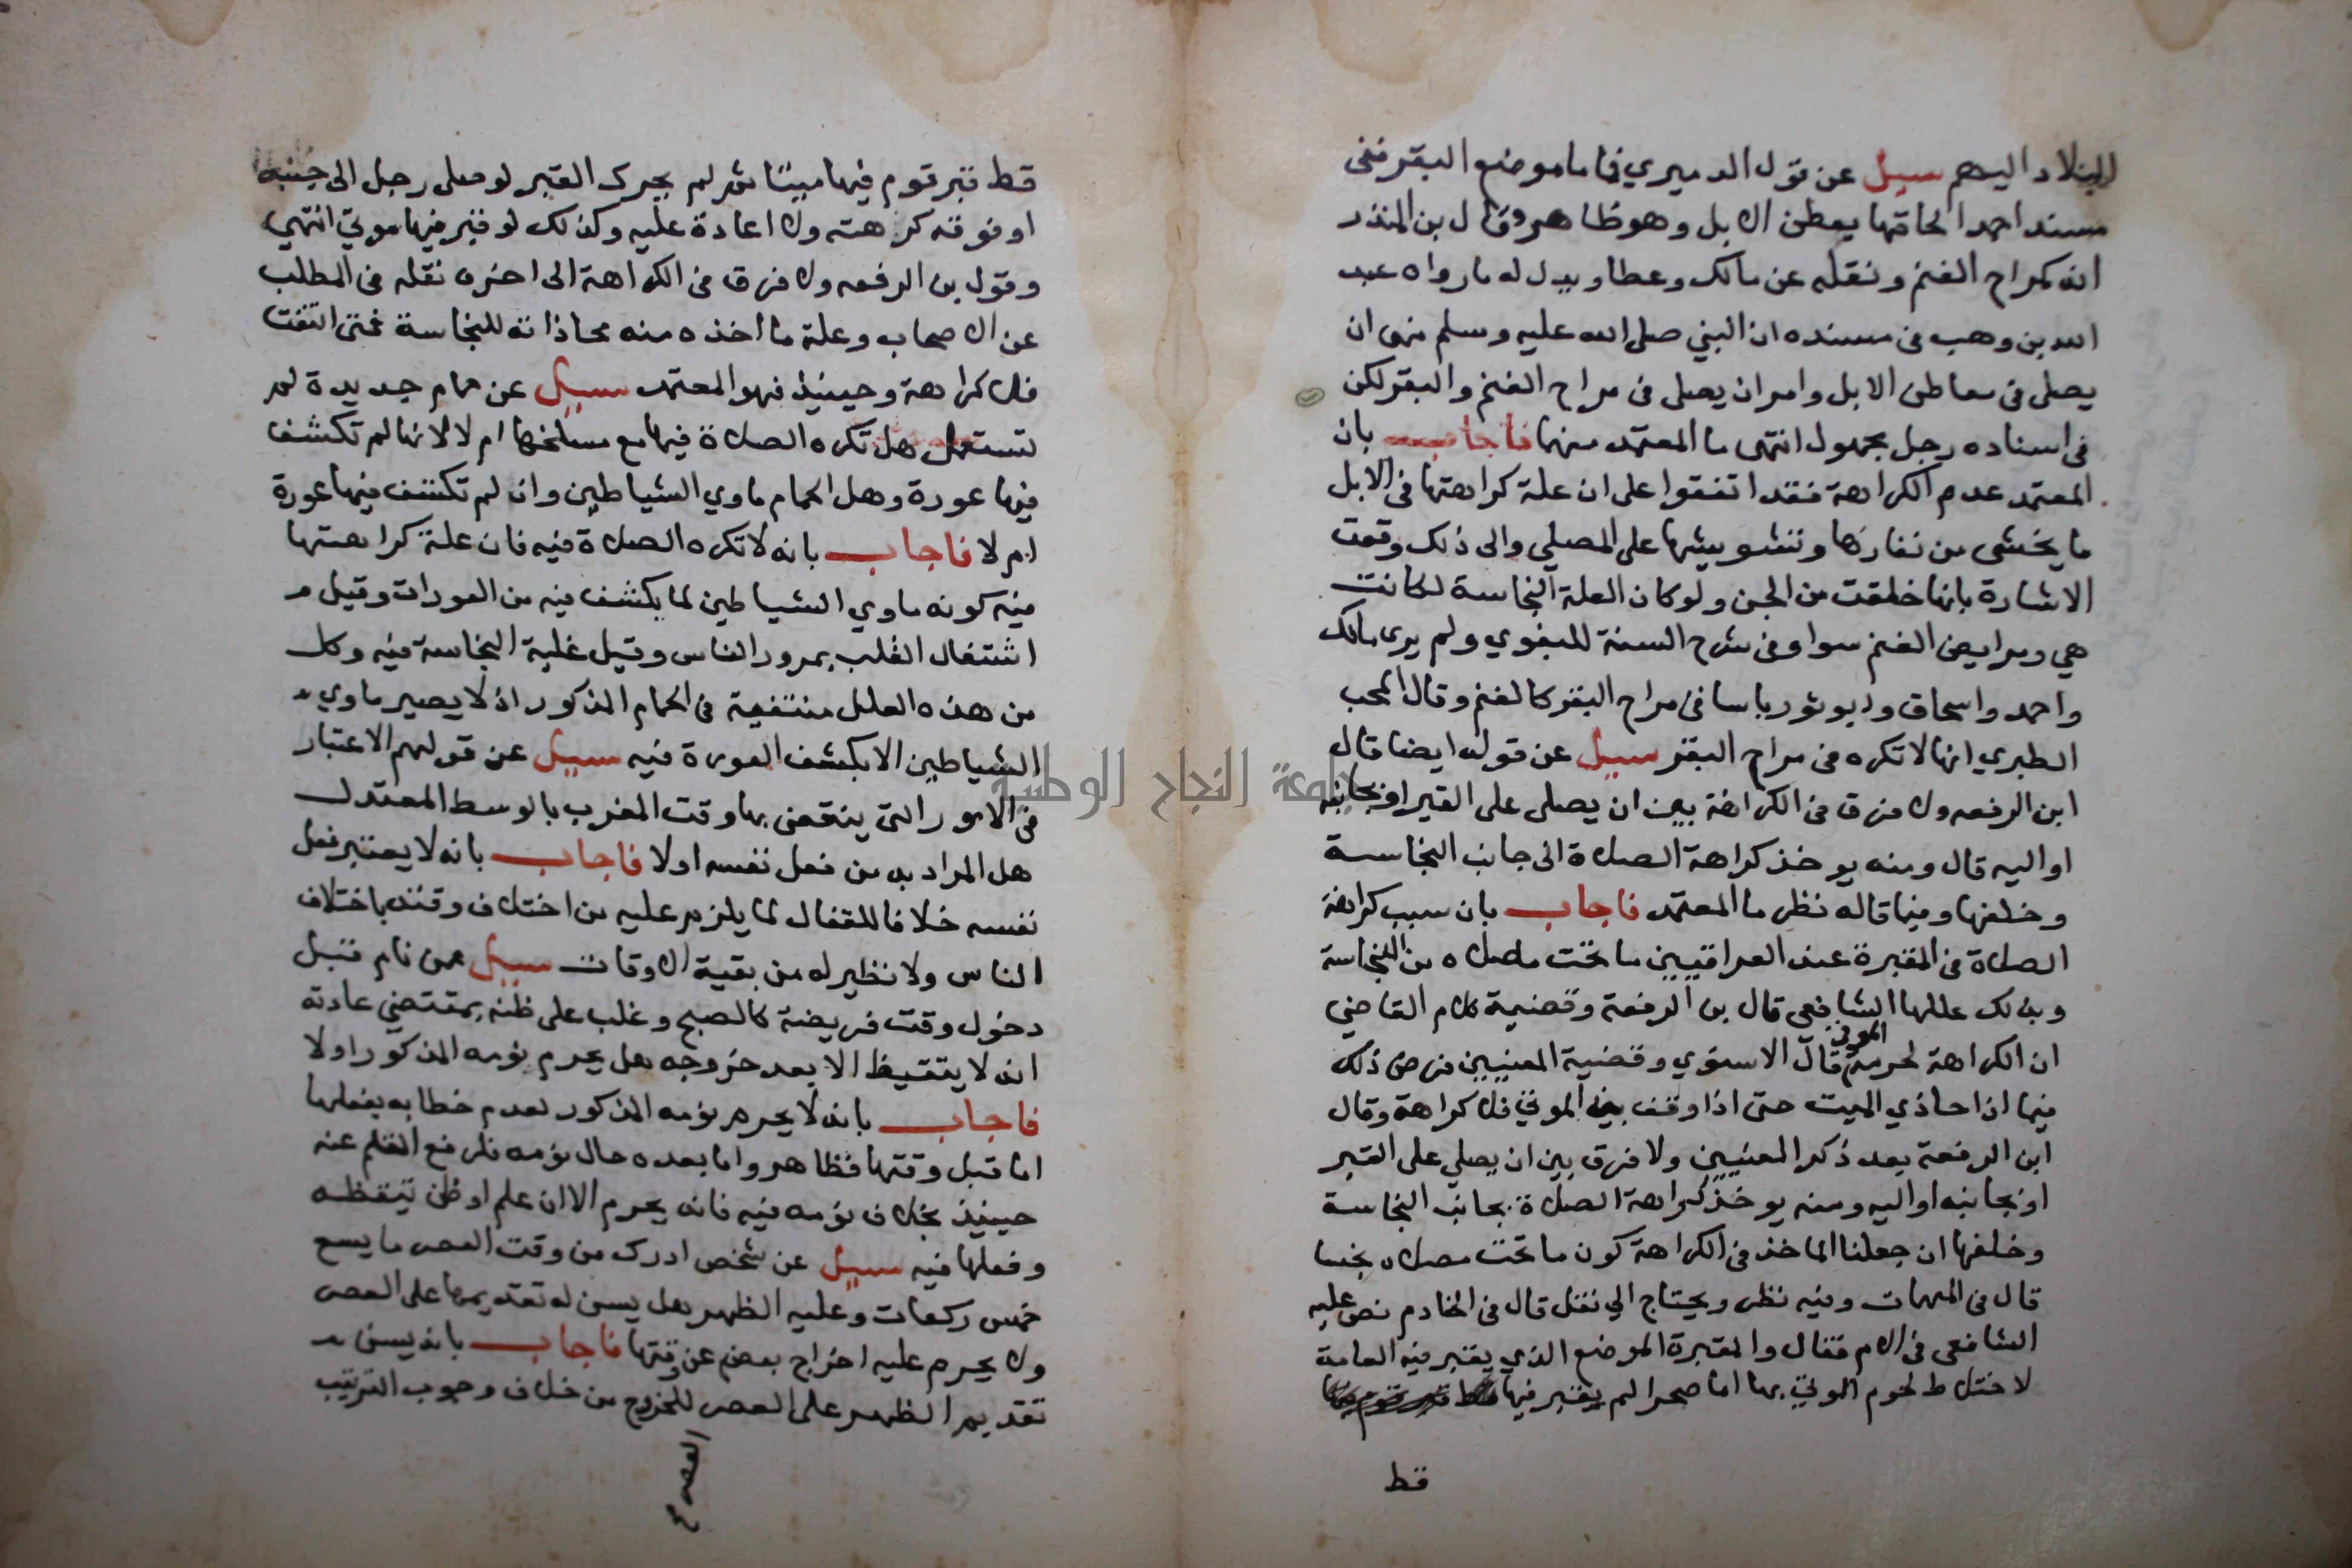 البلاد اليهم سيل عن قول الدميري فاما موضع البقر ففي
مسند احمد الحاقها بعطن الابل وهو ظاهر وقال بن المنذر
انه كمراح الغنم ونقله عن مالك وعطا ويدل له ما رواه عبد
الله بن وهب في مسنده ان النبي صلى الله عليه وسلم نهى ان
يصلى في معاطن الابل وامر ان يصلى في مراح الغنم والبقر لكن
في اسناده رجل مجهول انتهى ما المعتمد منهما فاجاب بان
المعتمد عدم الكراهة فقد اتفقوا على ان علة كراهتها في الابل
ما يخشى من نفارها وتشويشها على المصلي والى ذلك وقعت
الاشارة بانها خلقت من الجن ولو كان العلة النجاسة لكانت
هي ومرابض الغنم سوا وفي شرح السنة للبغوي ولم يرى مالك
واحمد واسحاق وابو ثور باسا في مراح البقر كالغنم وقال المحب
الطبري انها لا تكره في مراح البقر سيل عن قوله ايضا قال
ابن الرفعه ولا فرق في الكراهة بين ان يصلى على القبر او بجانبه
او اليه قال ومنه يوخذ كراهة الصلاة الى جانب النجاسة
وخلفها وفيما قاله نظر ما المعتمد فاجاب بان سبب كراهة
الصلاة في المقبرة عند العراقيين ما تحت مصلاه من النجاسة
وبذلك عللها الشافعي قال بن الرفعة وقضية كلام القاضي
ان الكراهة لحرمة الموتى قال الاسنوي وقضية المعنيين فرض ذلك
فيما اذا حاذي الميت حتى اذا وقف بين الموتي فلا كراهة وقال
ابن الرفعة بعد ذكر المعنيين ولا فرق بين ان يصلي على القبر
او بجانبه او اليه ومنه يوخذ كراهة الصلاة بجانب النجاسة
وخلفها ان جعلنا الماخذ في الكراهة كون ما تحت مصلاه نجسا
قال في المهمات وفيه نظر ويحتاج الي نقل قال في الخادم نص عليه
الشافعي في الام فقال والمقبرة الموضع الذي يقبر فيه العامة
لاختلاط لحوم الموتي بها اما صحرا لم يقبر فيها
قط
قط قبر قوم فيها ميتا ثم لم يحرك القبر لو صلى رجل الى جنبه
او فوقه كرهته ولا اعادة عليه وكذلك لو قبر فيها موتي انتهي
وقول بن الرفعه ولا فرق في الكراهة الى اخره نقله في المطلب
عن الاصحاب وعلة ما اخذه منه محاذاته للنجاسة فمتى انتفت
فلا كراهة وحينيذ فهو المعتمد سيل عن حمام جديدة لم
تستعمل هل تكره الصلاة فيها مع مسلخها ام لا لانها لم تكشف
فيها عورة وهل الحمام ماوي الشياطين وان لم تكشف فيها عورة
ام لا فاجاب بانه لا تكره الصلاة فيه فان علة كراهتها
فيه كونه ماوي الشياطين لما يكشف فيه من العورات وقيل
اشتغال القلب بمرور الناس وقيل غلبة النجاسة فيه وكل
من هذه العلل منتفية في الحمام المذكور اذ لا يصير ماوي
الشياطين الا بكشف العورة فيه سيل عن قولهم الاعتبار
في الامور التي ينقضي بها وقت المغرب بالوسط المعتدل
هل المراد به من فعل نفسه اولا فاجاب بانه لا يعتبر فعل
نفسه خلافا للقفال لما يلزم عليه من اختلاف وقته باختلاف
الناس ولا نظير له من بقية الاوقات سيل عمن نام قبل
دخول وقت فريضة كالصبح وغلب على ظنه بمقتضي عادته
انه لا يتقيظ الا بعد خروجه هل يحرم نومه المذكور اولا
فاجاب بانه لا يحرم نومه المذكور لعدم خطابه بفعلها
اما قبل وقتها فظاهر واما بعده حال نومه فلرفع القلم عنه
حينيذ بخلاف نومه فيه فانه يحرم الا ان علم او ظن تيقظه
وفعلها فيه سيل عن شخص ادرك من وقت العصر ما يسع
خمس ركعات وعليه الظهر هل يسن له تقديمها على العصر
ولا يحرم عليه اخراج بعض عن وقتها فاجاب بانه يسن
تقديم الظهر على العصر للخروج من خلاف وجوب الترتيب
العصر
جامعة النجاح الوطنية